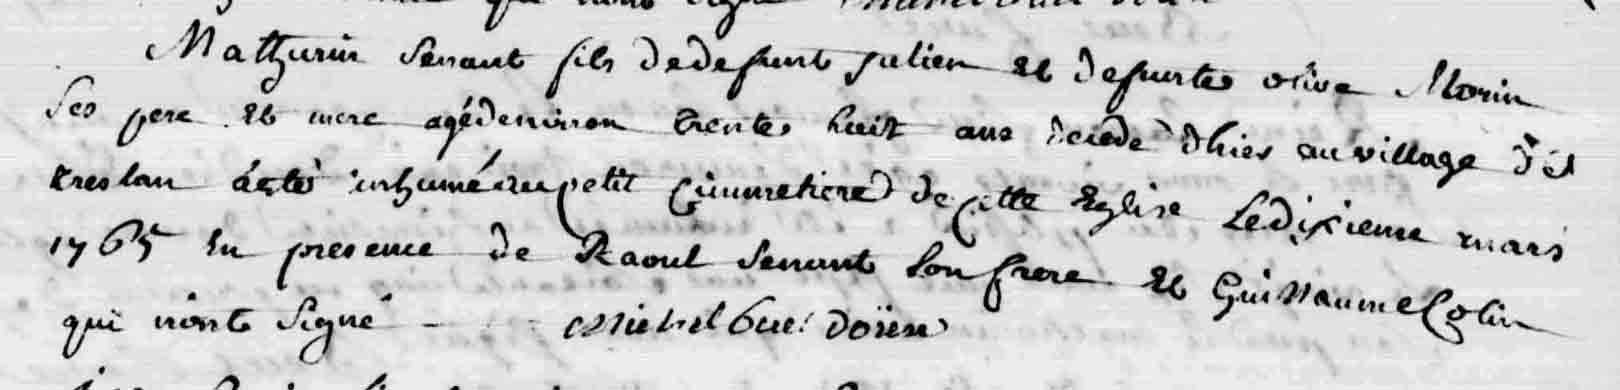 Mathurin Senant fils de defunt Julien et defunte olive Morin
Ses pere et mere agé denviron trente huit ans decedé dhier au village de
treslan a eté inhumé au petit Cimmetiere de cette Eglise Le dixieme mars
1765 En presence de Raoul Senant Son frere et Guillaume Colin
qui n'ont Signé - Michel doïen